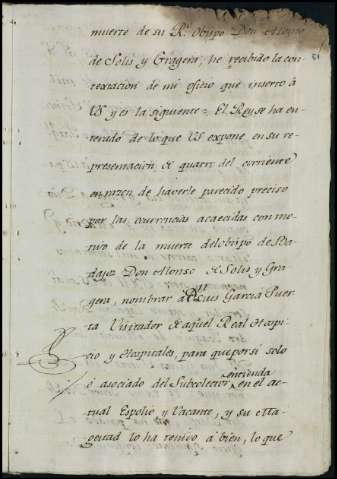 muerte de su Rº. Obispo Don Alonso
de Solis y Gragera, he recibido la con
textacion de mi oficio que inserto à
VS y es la siguiente = El Rey se ha en
terado de lo que VS expone, en su re
presentacion de quatro del corriente
en razon de haverle parecido preciso
por las ocurrencias acaecidas con mo
tivo de la muerte del obispo de Ba
dajoz Don Alonso de Solis y Gra
gera, nombrar à Dn Luis Garcia Puer
ta Visitador de aquel Real Hospi
cio y Hospitales, para que por si solo
ò asociado del Subcolector entienda en el ac
tual Espolio y Vacante, y su Ma
gestad lo ha tenido à bien, lo que